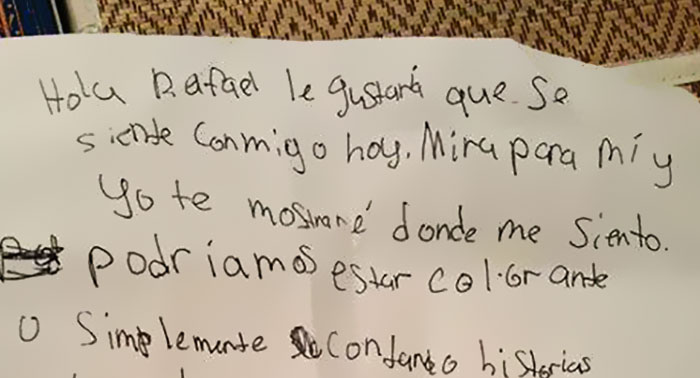 Hola Rafael le gustará que se
siente conmigo hoy. Mira para mí y
yo te mostraré donde me siento.
podríamos estar colorante
o simplemente contando historias